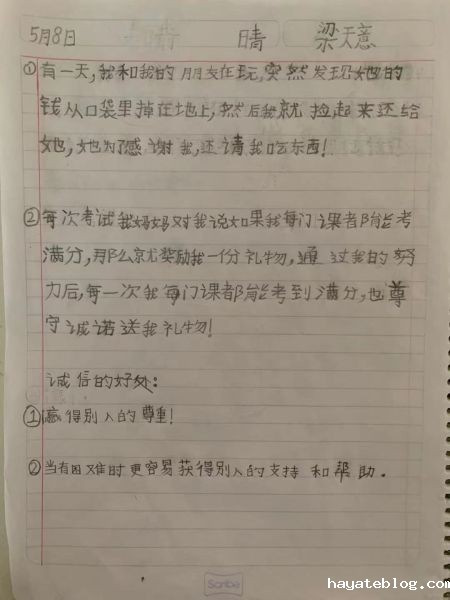 5月8日 晴 梁天意
①有一天,我和我的朋友在玩,突然发现她的
钱从口袋里掉在地上,然后我就捡起来还给
她,她为了感谢我,还请我吃东西!
②每次考试我妈妈对我说如果我每门课都能考
满分,那么就奖励我一份礼物,通过我的努
力后,每一次我每门课都能考到满分,也尊
守诚诺送我礼物!
诚信的好处:
①赢得别人的尊重!
②当有困难时更容易获得别人的支持和帮助.
Scribe
hayateblog.com